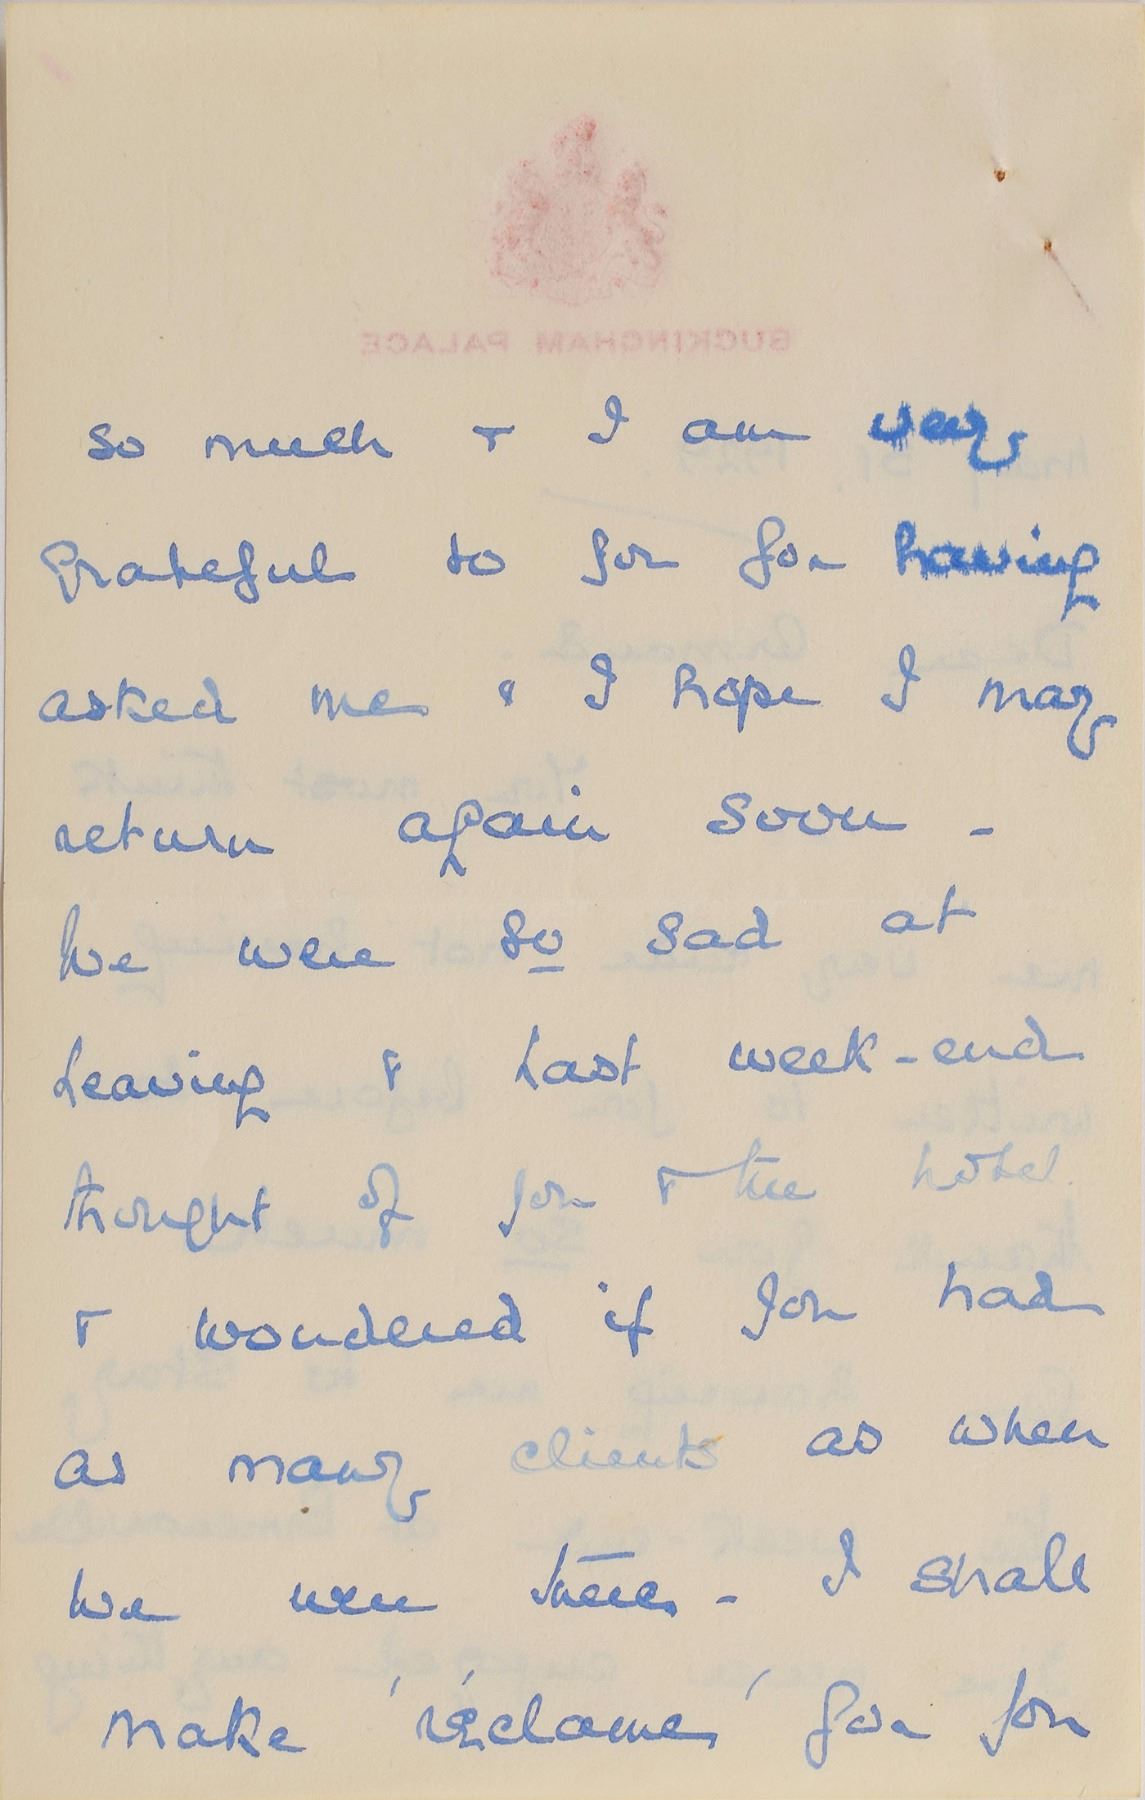 BUCKINGHAM PALACE
so much & I am very
grateful to you for having
asked me & I hope I may
return again soon -
We were so sad at
leaving & last week-end
thought of you & the hotel
& wondered if you had
as many clients as when
we were there - I shall
make 'réclame' for you